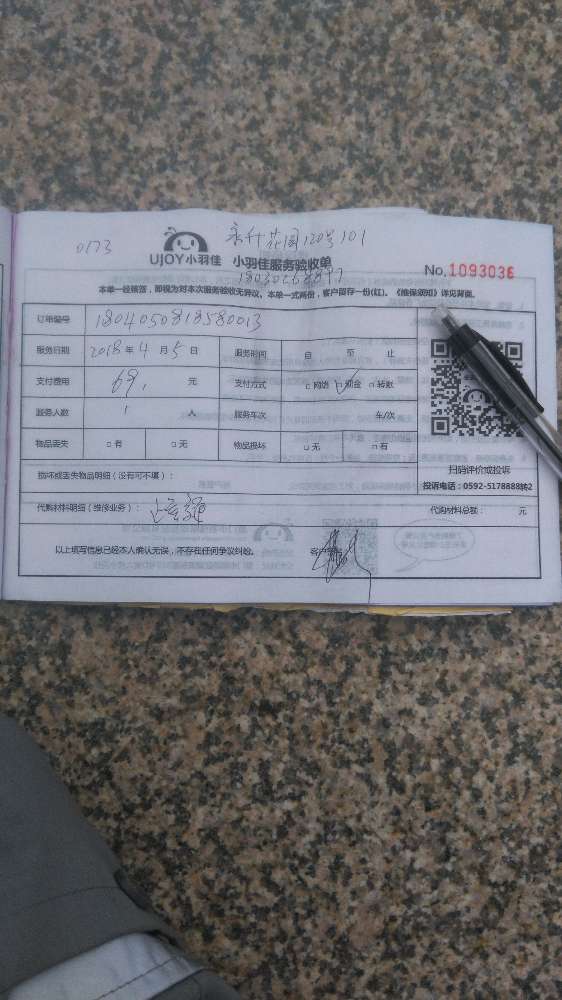 0173
永升花园120号101
UJOY小羽佳 小羽佳服务验收单
No.1093036
本单一经签答，即视为对本次服务验收无异议，本单一式两份，客户留存一份(红)。《维保须知》详见背面。
订单编号 1804050818580013
服务日期 2018年4月5日 服务时间 自 至 止
支付费用 69. 元 支付方式 □网络 □现金 □转账
服务人数 1 人 服务车次 车/次
物品丢失 □有 □无 物品损坏 □无 □有
扫码评价或投诉
损坏或丢失物品明细（没有可不填）：
投诉电话：0592-5178888转2
代购材料明细（维修业务）： 代购材料总额： 元
以上填写信息已经本人确认无误，不存在任何争议纠纷。 客户